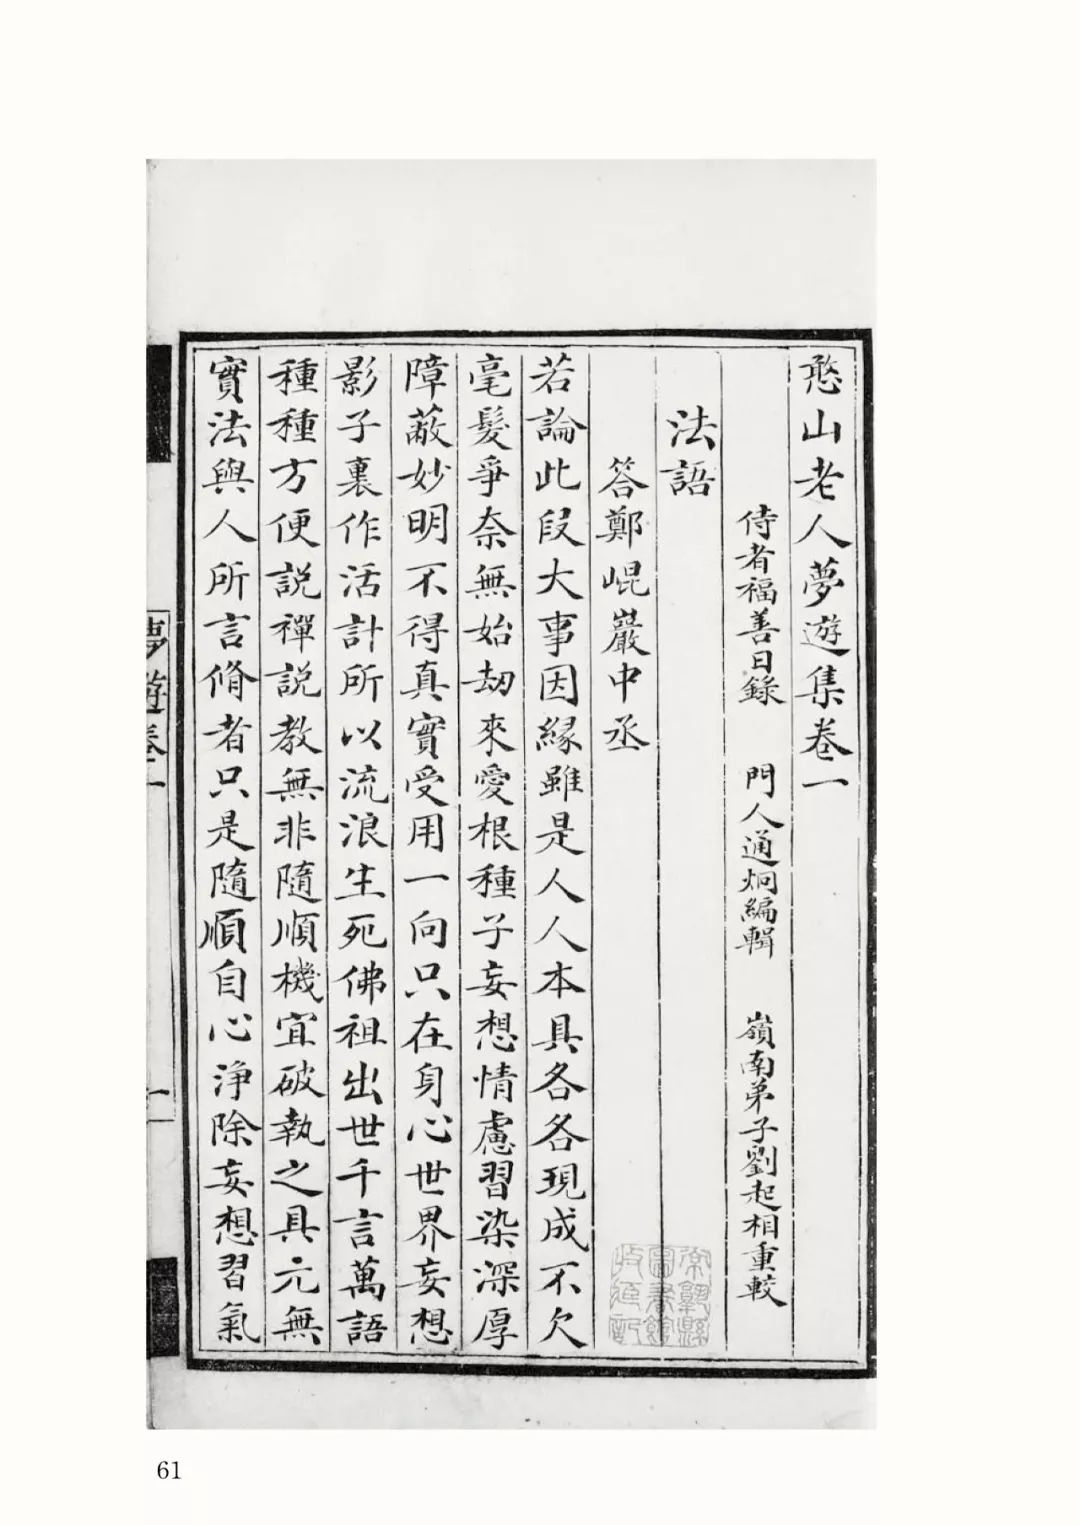 憨山老人夢遊集卷一
侍者福善日錄 門人通炯編輯 嶺南弟子劉起相重較
法語
答鄭崐巖中丞
若論此段大事因緣雖是人人本具各各現成不欠
毫髮爭奈無始劫來愛根種子妄想情慮習染深厚
障蔽妙明不得真實受用一向只在身心世界妄想
影子裏作活計所以流浪生死佛祖出世千言萬語
種種方便説禪説教無非隨順機宜破執之具元無
實法與人所言脩者只是隨順自心淨除妄想習氣
夢遊卷一
一
常熟縣
圖書館
61